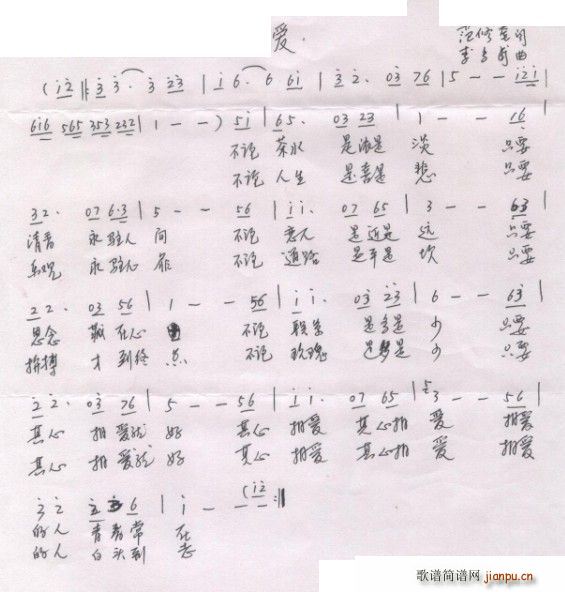 爱.
范修奎词
李 曲
(i 2 ‖: 3 3. 3 23 | i 6. 6 6i | 3 2. 03 76 | 5 - - i2i |
6i6 565 353 232 | 1 - - ) 5i | 65. 03 23 | 1 - - 16 |
不论 茶水 是浓是 淡 只要
不论 人生 是喜是 悲 只要
32. 07 6·3 | 5 - - 56 | ii. 07 65 | 3 - - 63 |
清香 永驻人 间 不论 恋人 是近是 远 只要
乐观 永驻心 扉 不论 道路 是平是 坎 只要
22. 03 56 | 1 - - 56 | ii. 03 23 | 6 - - 63 |
思念 在心 不论 是多是 少 只要
拚搏 才到终 点 不论 玫瑰 是多是 少 只要
22. 03 76 | 5 - - 56 | ii. 07 65 | 5 3 - - 56 |
真心 相爱就 好 真心 相爱 真心相 爱 相爱
真心 相爱就 好 真心 相爱 真心相 爱 相爱
32 6 | i - (i2 :‖
的人 青春常 在
的人 白头到 老
歌谱简谱网 jianpu.cn